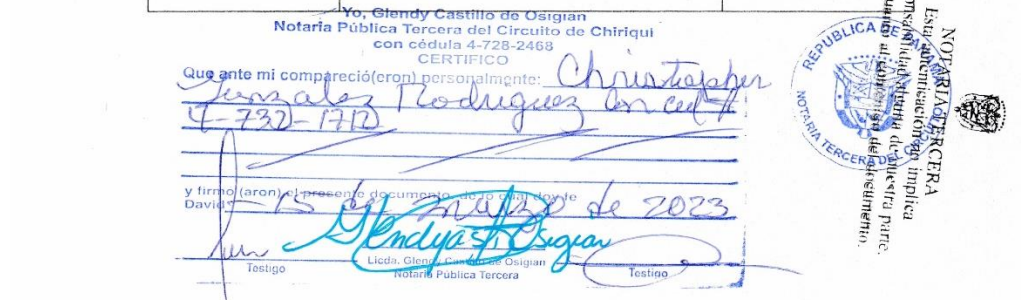 Yo, Glendy Castillo de Osigian
Notaria Pública Tercera del Circuito de Chiriquí
con cédula 4-728-2468
CERTIFICO
Que ante mi compareció(eron) personalmente: Christopher
Gonzalez Rodriguez con ced #
4-732-1712
y firmo (aron) el presente documento, de lo cual doy fe
David 15 de marzo de 2023
Glendy Osigian
Testigo
Licda. Glendy Castillo de Osigian
Notaria Pública Tercera
Testigo
REPUBLICA DE PANAMA
NOTARIA TERCERA DEL CIRCUITO
NOTARIA TERCERA
Esta autenticación no implica
responsabilidad alguna de nuestra parte,
en cuanto al contenido del documento.